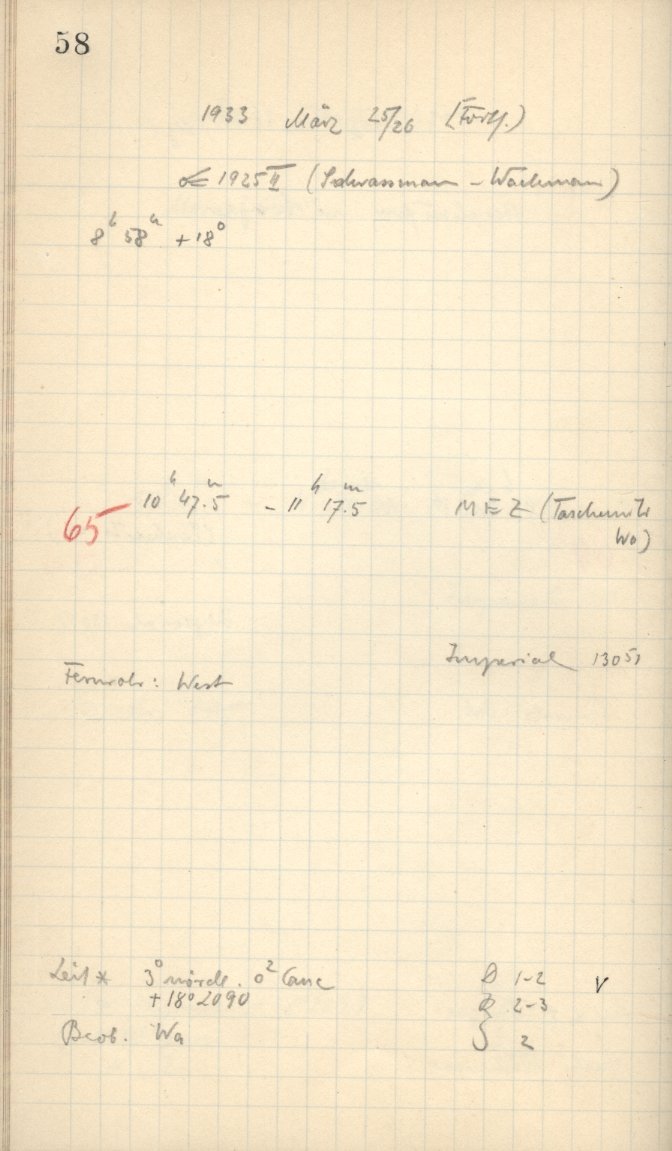 58
1933 März 25/26 (Forts.)
☄ 1925 II (Schwassmann - Wachmann)
8h 58m +18°
65
10h 47.5m - 11h 17.5m MEZ (Taschenuhr
Wa)
Imperial 13051
Fernrohr: West
Leit * 3° nördl. o² Canc D 1-2 V
+18° 2090 R 2-3
Beob. Wa S 2